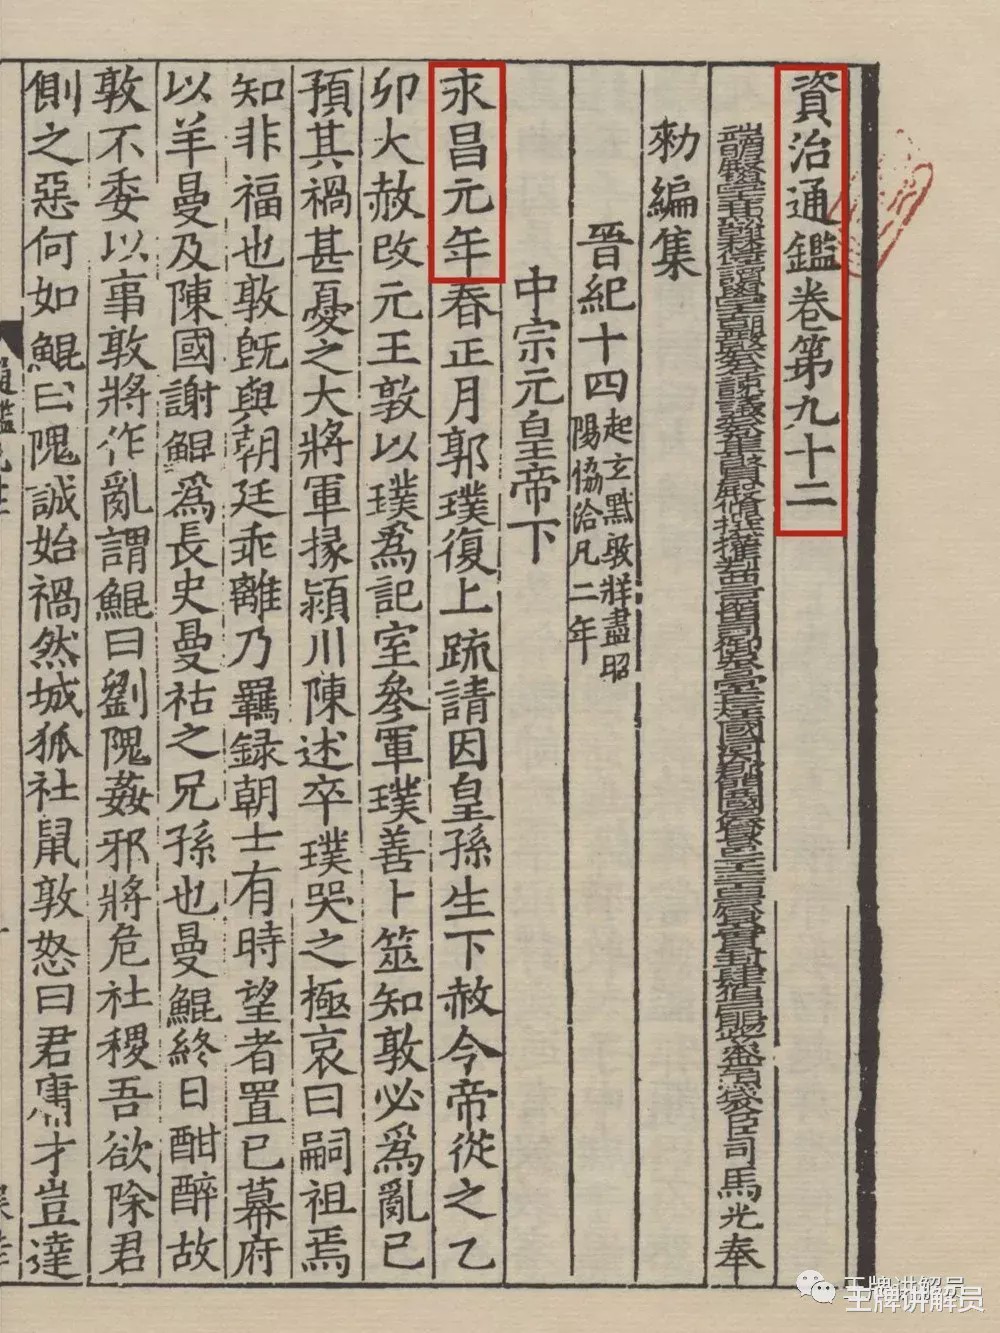 資治通鑑卷第九十二
臣司馬光奉
勑編集
晉紀十四 起玄黓敦牂盡昭
陽協洽凡二年
中宗元皇帝下
永昌元年春正月郭璞復上疏請因皇孫生下赦令帝從之乙
卯大赦改元王敦以璞爲記室參軍璞善卜筮知敦必爲亂已
預其禍甚憂之大將軍掾潁川陳述卒璞哭之極哀曰嗣祖焉
知非福也敦旣與朝廷乖離乃羈録朝士有時望者置已幕府
以羊曼及陳國謝鯤爲長史曼祜之兄孫也曼鯤終日酣醉故
敦不委以事敦將作亂謂鯤曰劉隗姦邪將危社稷吾欲除君
側之惡何如鯤曰隗誠始禍然城狐社鼠敦怒曰君庸才豈達
王牌讲解员
王牌讲解员